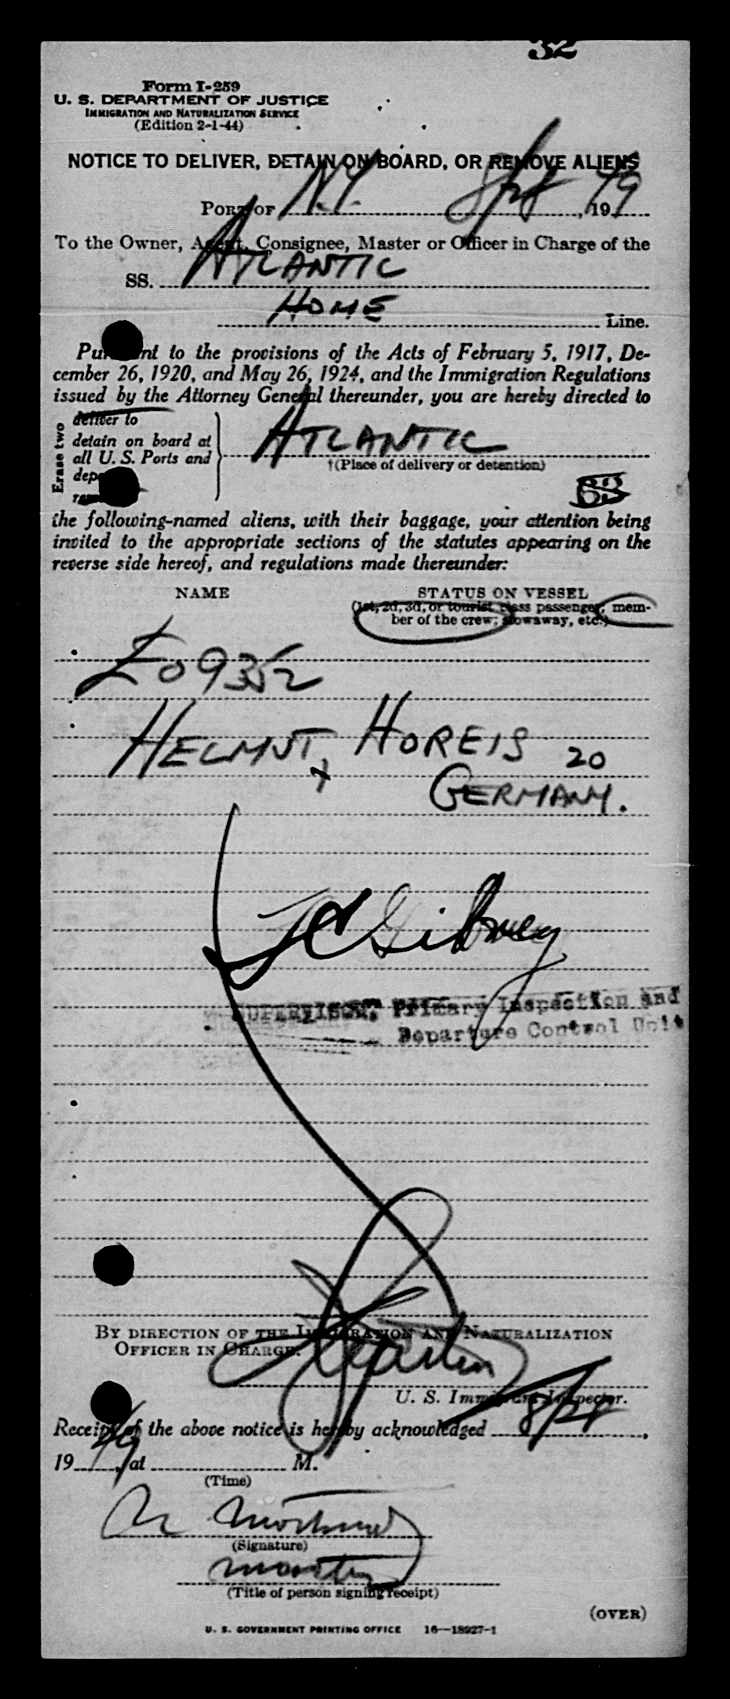 32
Form I-259
U. S. DEPARTMENT OF JUSTICE
IMMIGRATION AND NATURALIZATION SERVICE
(Edition 2-1-44)
NOTICE TO DELIVER, DETAIN ON BOARD, OR REMOVE ALIENS
PORT OF N.Y. 8/28, 1949
To the Owner, Agent, Consignee, Master or Officer in Charge of the
SS. ATLANTIC
HOME Line.
Pursuant to the provisions of the Acts of February 5, 1917, De-
cember 26, 1920, and May 26, 1924, and the Immigration Regulations
issued by the Attorney General thereunder, you are hereby directed to
Erase two
deliver to
detain on board at
all U. S. Ports and
ATLANTIC
†(Place of delivery or detention)
63
the following-named aliens, with their baggage, your attention being
invited to the appropriate sections of the statutes appearing on the
reverse side hereof, and regulations made thereunder:
NAME STATUS ON VESSEL
(1st, 2d, 3d, or tourist class passenger, mem-
ber of the crew; stowaway, etc.)
£09352
HELMUT, HOREIS 20
GERMANY.
SUPERVISOR, Primary Inspection and
Departure Control Unit
BY DIRECTION OF THE IMMIGRATION AND NATURALIZATION
OFFICER IN CHARGE.
U. S. Immigrant Inspector.
Receipt of the above notice is hereby acknowledged 8/28,
1949, at M.
(Time)
(Signature)
(Title of person signing receipt)
(OVER)
U. S. GOVERNMENT PRINTING OFFICE 16—18927-1